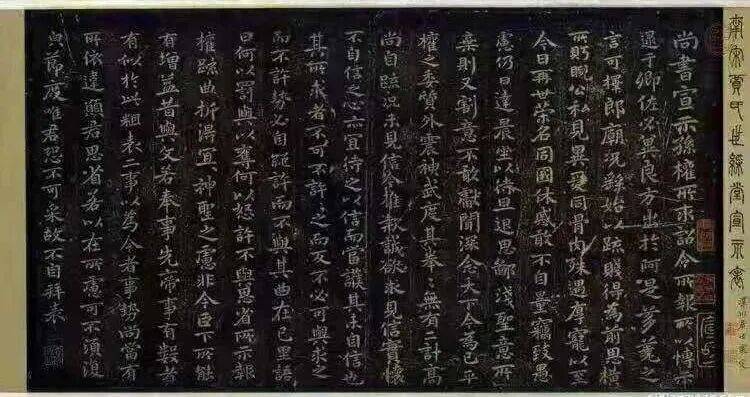 南宋賈氏世綵堂宣示表
尚書宣示孫權所求詔令所報所以博示
逮于卿佐必冀良方出於阿是芻蕘之
言可擇郎廟況繇始以疏賤得為前恩橫
所盼睨公私見異愛同骨肉殊遇厚寵以至
今日再世榮名同國休慼敢不自量竊致愚
慮仍日達晨坐以待旦退思鄙淺聖意所
棄則又割意不敢獻聞深念天下今為已平
權之委質外震神武度其拳々無有二計高
尚自疏況未見信今推款誠欲求見信實懷
不自信之心亦宜待之以信而當護其未自信也
其所求者不可不許々之而反不必可與求之
而不許勢必自絕許而不與其曲在己里語
曰何以罰與以奪何以怒許不與思省所示報
權疏曲折得宜々神聖之慮非今臣下所能
有增益昔與文若奉事先帝事有數者
有似於此粗表二事以為今者事勢尚當有
所依違願君思省若以在所慮可不須復
與節度唯君恐不可采故不自拜表